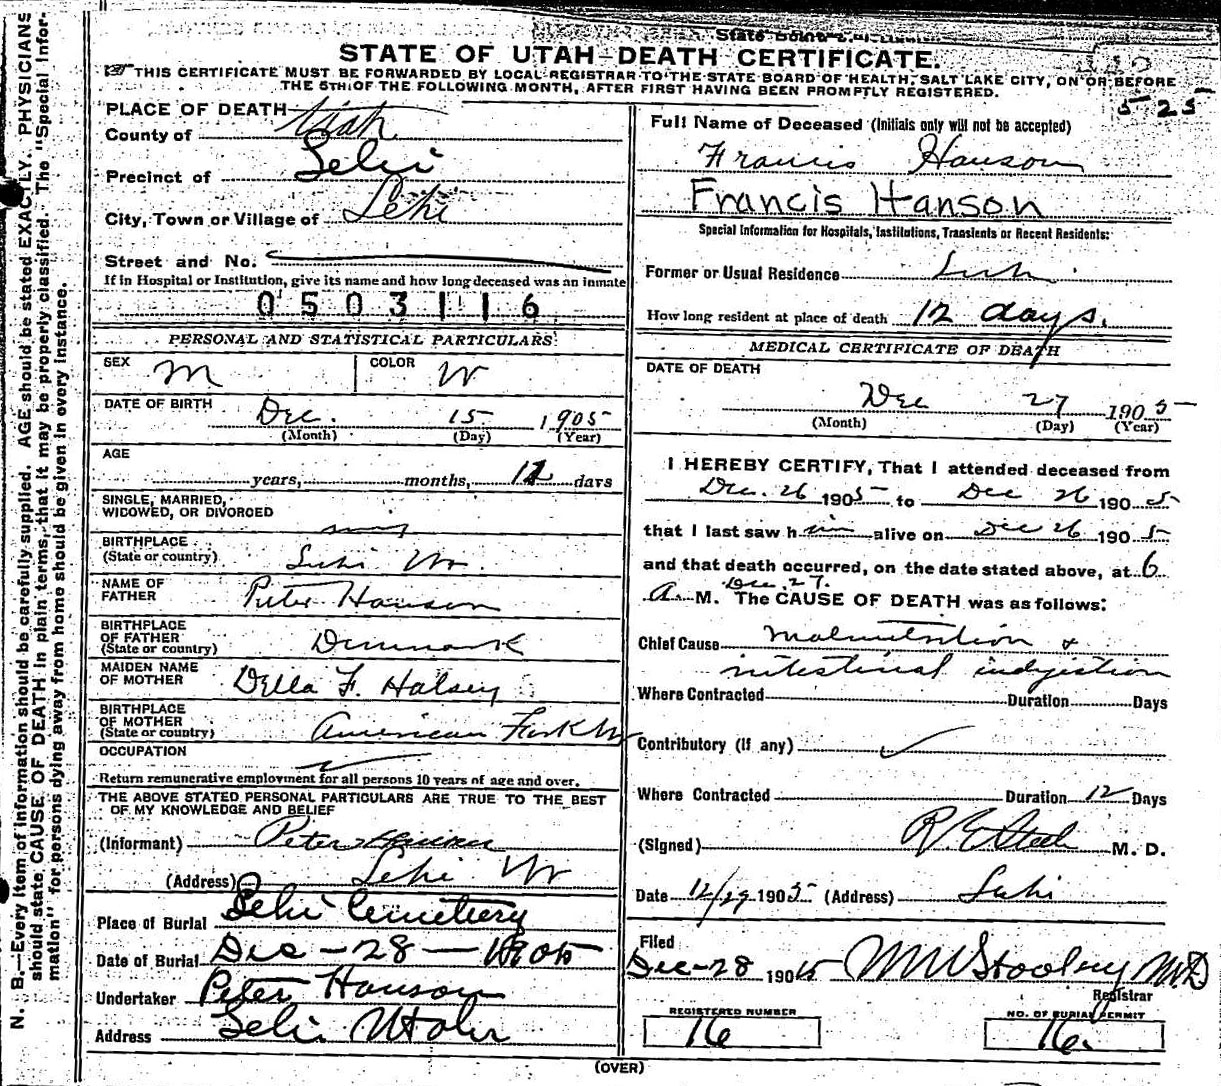 State Board
STATE OF UTAH—DEATH CERTIFICATE.
THIS CERTIFICATE MUST BE FORWARDED BY LOCAL REGISTRAR TO THE STATE BOARD OF HEALTH, SALT LAKE CITY, ON OR BEFORE
THE 5TH OF THE FOLLOWING MONTH, AFTER FIRST HAVING BEEN PROMPTLY REGISTERED.
5-25
PLACE OF DEATH—
County of Utah
Precinct of Lehi
City, Town or Village of Lehi
Street and No.
If in Hospital or Institution, give its name and how long deceased was an inmate
0503116
PERSONAL AND STATISTICAL PARTICULARS
SEX M COLOR W
DATE OF BIRTH Dec. 15 1905
(Month) (Day) (Year)
AGE
years, months, 12 days
SINGLE, MARRIED,
WIDOWED, OR DIVORCED
BIRTHPLACE
(State or country) Lehi Ut.
NAME OF
FATHER Peter Hanson
BIRTHPLACE
OF FATHER
(State or country) Denmark
MAIDEN NAME
OF MOTHER Della F. Halsey
BIRTHPLACE
OF MOTHER
(State or country) American Fork Ut
OCCUPATION
Return remunerative employment for all persons 10 years of age and over.
THE ABOVE STATED PERSONAL PARTICULARS ARE TRUE TO THE BEST
OF MY KNOWLEDGE AND BELIEF
(Informant) Peter Hanson
(Address) Lehi Ut
Place of Burial Lehi Cemetery
Date of Burial Dec - 28 - 1905
Undertaker Peter Hanson
Address Lehi Utah
Full Name of Deceased (Initials only will not be accepted)
Francis Hanson
Francis Hanson
Special Information for Hospitals, Institutions, Transients or Recent Residents:
Former or Usual Residence Lehi
How long resident at place of death 12 days.
MEDICAL CERTIFICATE OF DEATH
DATE OF DEATH
Dec 27 1905
(Month) (Day) (Year)
I HEREBY CERTIFY, That I attended deceased from
Dec. 26 1905 to Dec 26 1905
that I last saw him alive on Dec 26 1905
and that death occurred, on the date stated above, at 6
Dec 27.
A. M. The CAUSE OF DEATH was as follows:
Chief Cause malnutrition &
intestinal indigestion
Where Contracted Duration Days
Contributory (if any)
Where Contracted Duration 12 Days
(Signed) R. E. Steele M. D.
Date 12/29 1905 (Address) Lehi
Filed
Dec-28 1905 M. D.
Registrar
REGISTERED NUMBER
16
NO. OF BURIAL PERMIT
16.
(OVER)
N. B.—Every item of information should be carefully supplied. AGE should be stated EXACTLY. PHYSICIANS
should state CAUSE OF DEATH in plain terms, that it may be properly classified. The "Special Infor-
mation" for persons dying away from home should be given in every instance.